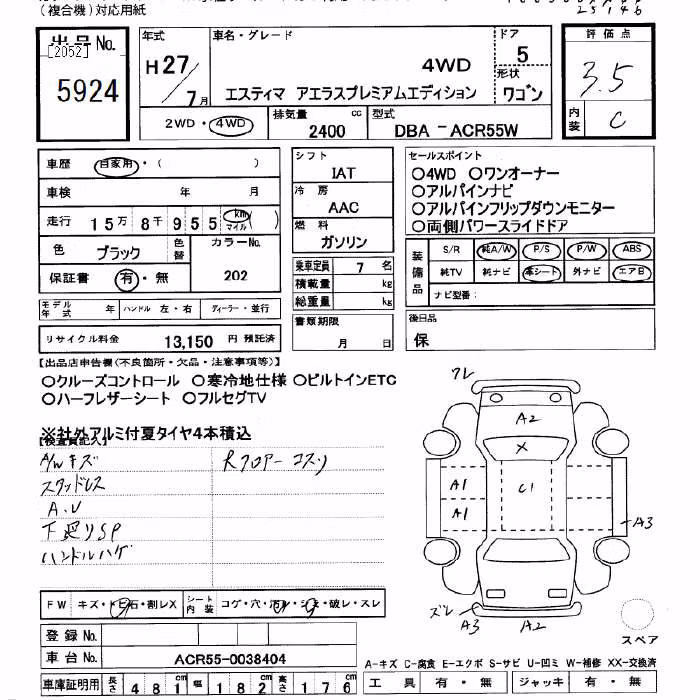 (複合機)対応用紙
出品No.
[2052]
5924
年式
H27/7月
車名・グレード
4WD
エスティマ アエラスプレミアムエディション
ドア
5
形状
ワゴン
2WD・4WD
排気量
2400 cc
型式
DBA-ACR55W
評価点
3.5
内装
C
車歴 自家用・( )
車検 年 月
走行 15万8千955 km マイル ( )
色 ブラック 色替 カラーNo.
202
保証書 有・無
モデル年式 年 ハンドル 左・右 ディーラー・並行
リサイクル料金 13,150 円 預託済
シフト
IAT
冷房
AAC
燃料
ガソリン
乗車定員 7 名
積載量 kg
総重量 kg
書類期限
月 日
セールスポイント
○4WD ○ワンオーナー
○アルパインナビ
○アルパインフリップダウンモニター
○両側パワースライドドア
装備品
S/R 純A/W P/S P/W ABS
純TV 純ナビ 革シート 外ナビ エアB
ナビ型番:
後日品
保
【出品店申告欄(不良箇所・欠品・注意事項等)】
○クルーズコントロール ○寒冷地仕様 ○ビルトインETC
○ハーフレザーシート ○フルセグTV
※社外アルミ付夏タイヤ4本積込
【検査員記入】
A/Wキズ
Rフロアー コスリ
スタッドレス
A.V
下廻りSP
ハンドルハゲ
FW キズ・トビ石・割レX
シート内装 コゲ・穴・汚レ・シミ・破レ・スレ
登録No.
車台No. ACR55-0038404
車庫証明用 長さ 481cm 幅 182cm 高さ 176cm
ワレ
A2
X
A1
C1
A1
A3
ズレ
A3
A2
スペア
A-キズ C-腐食 E-エクボ S-サビ U-凹ミ W-補修 XX-交換済
工具 有・無 ジャッキ 有・無